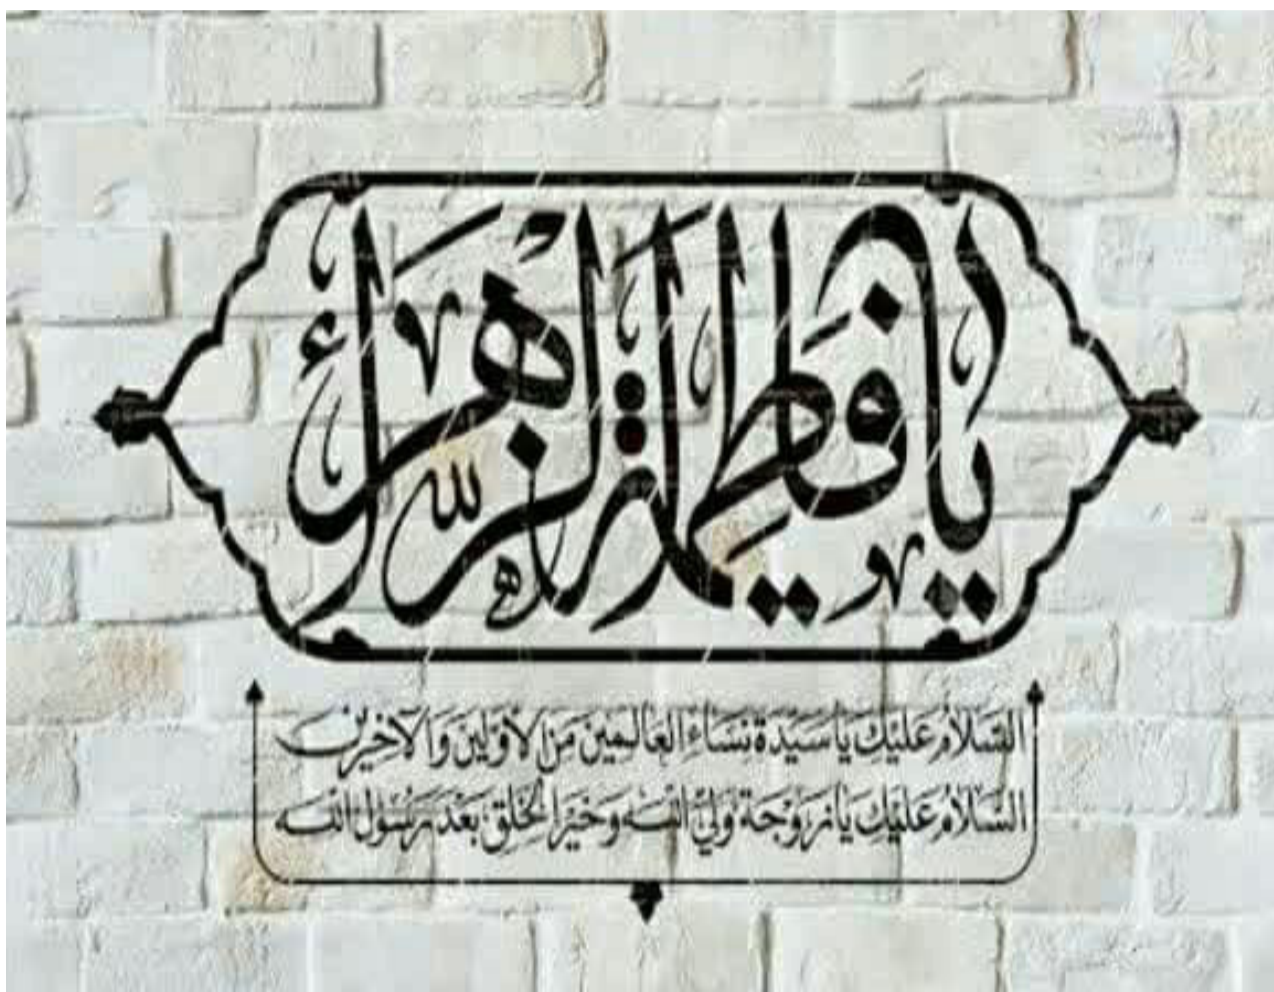 يا فاطمة الزهراء
السَّلامُ عَلَيْكِ يا سَيِّدَةَ نِسَاءِ العالَمينَ مِنَ الأوَّلينَ وَالآخِرينَ
السَّلامُ عَلَيْكِ يا زَوْجَةَ وَلِيِّ اللهِ وَخَيْرِ الخَلْقِ بَعْدَ رَسُولِ اللهِ